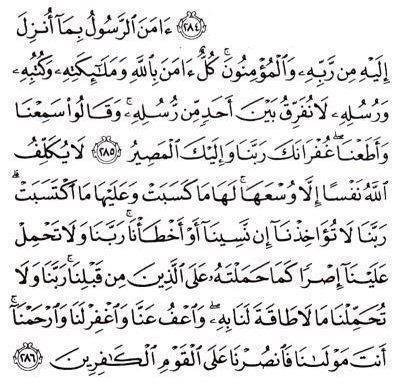 ﴿٢٨٤﴾ ءَامَنَ ٱلرَّسُولُ بِمَآ أُنزِلَ
إِلَيْهِ مِن رَّبِّهِۦ وَٱلْمُؤْمِنُونَ ۚ كُلٌّ ءَامَنَ بِٱللَّهِ وَمَلَـٰٓئِكَتِهِۦ وَكُتُبِهِۦ
وَرُسُلِهِۦ لَا نُفَرِّقُ بَيْنَ أَحَدٍ مِّن رُّسُلِهِۦ ۚ وَقَالُوا۟ سَمِعْنَا
وَأَطَعْنَا ۖ غُفْرَانَكَ رَبَّنَا وَإِلَيْكَ ٱلْمَصِيرُ ﴿٢٨٥﴾ لَا يُكَلِّفُ
ٱللَّهُ نَفْسًا إِلَّا وُسْعَهَا ۚ لَهَا مَا كَسَبَتْ وَعَلَيْهَا مَا ٱكْتَسَبَتْ ۗ
رَبَّنَا لَا تُؤَاخِذْنَآ إِن نَّسِينَآ أَوْ أَخْطَأْنَا ۚ رَبَّنَا وَلَا تَحْمِلْ
عَلَيْنَآ إِصْرًا كَمَا حَمَلْتَهُۥ عَلَى ٱلَّذِينَ مِن قَبْلِنَا ۚ رَبَّنَا وَلَا
تُحَمِّلْنَا مَا لَا طَاقَةَ لَنَا بِهِۦ ۖ وَٱعْفُ عَنَّا وَٱغْفِرْ لَنَا وَٱرْحَمْنَآ ۚ
أَنتَ مَوْلَىٰنَا فَٱنصُرْنَا عَلَى ٱلْقَوْمِ ٱلْكَـٰفِرِينَ ﴿٢٨٦﴾